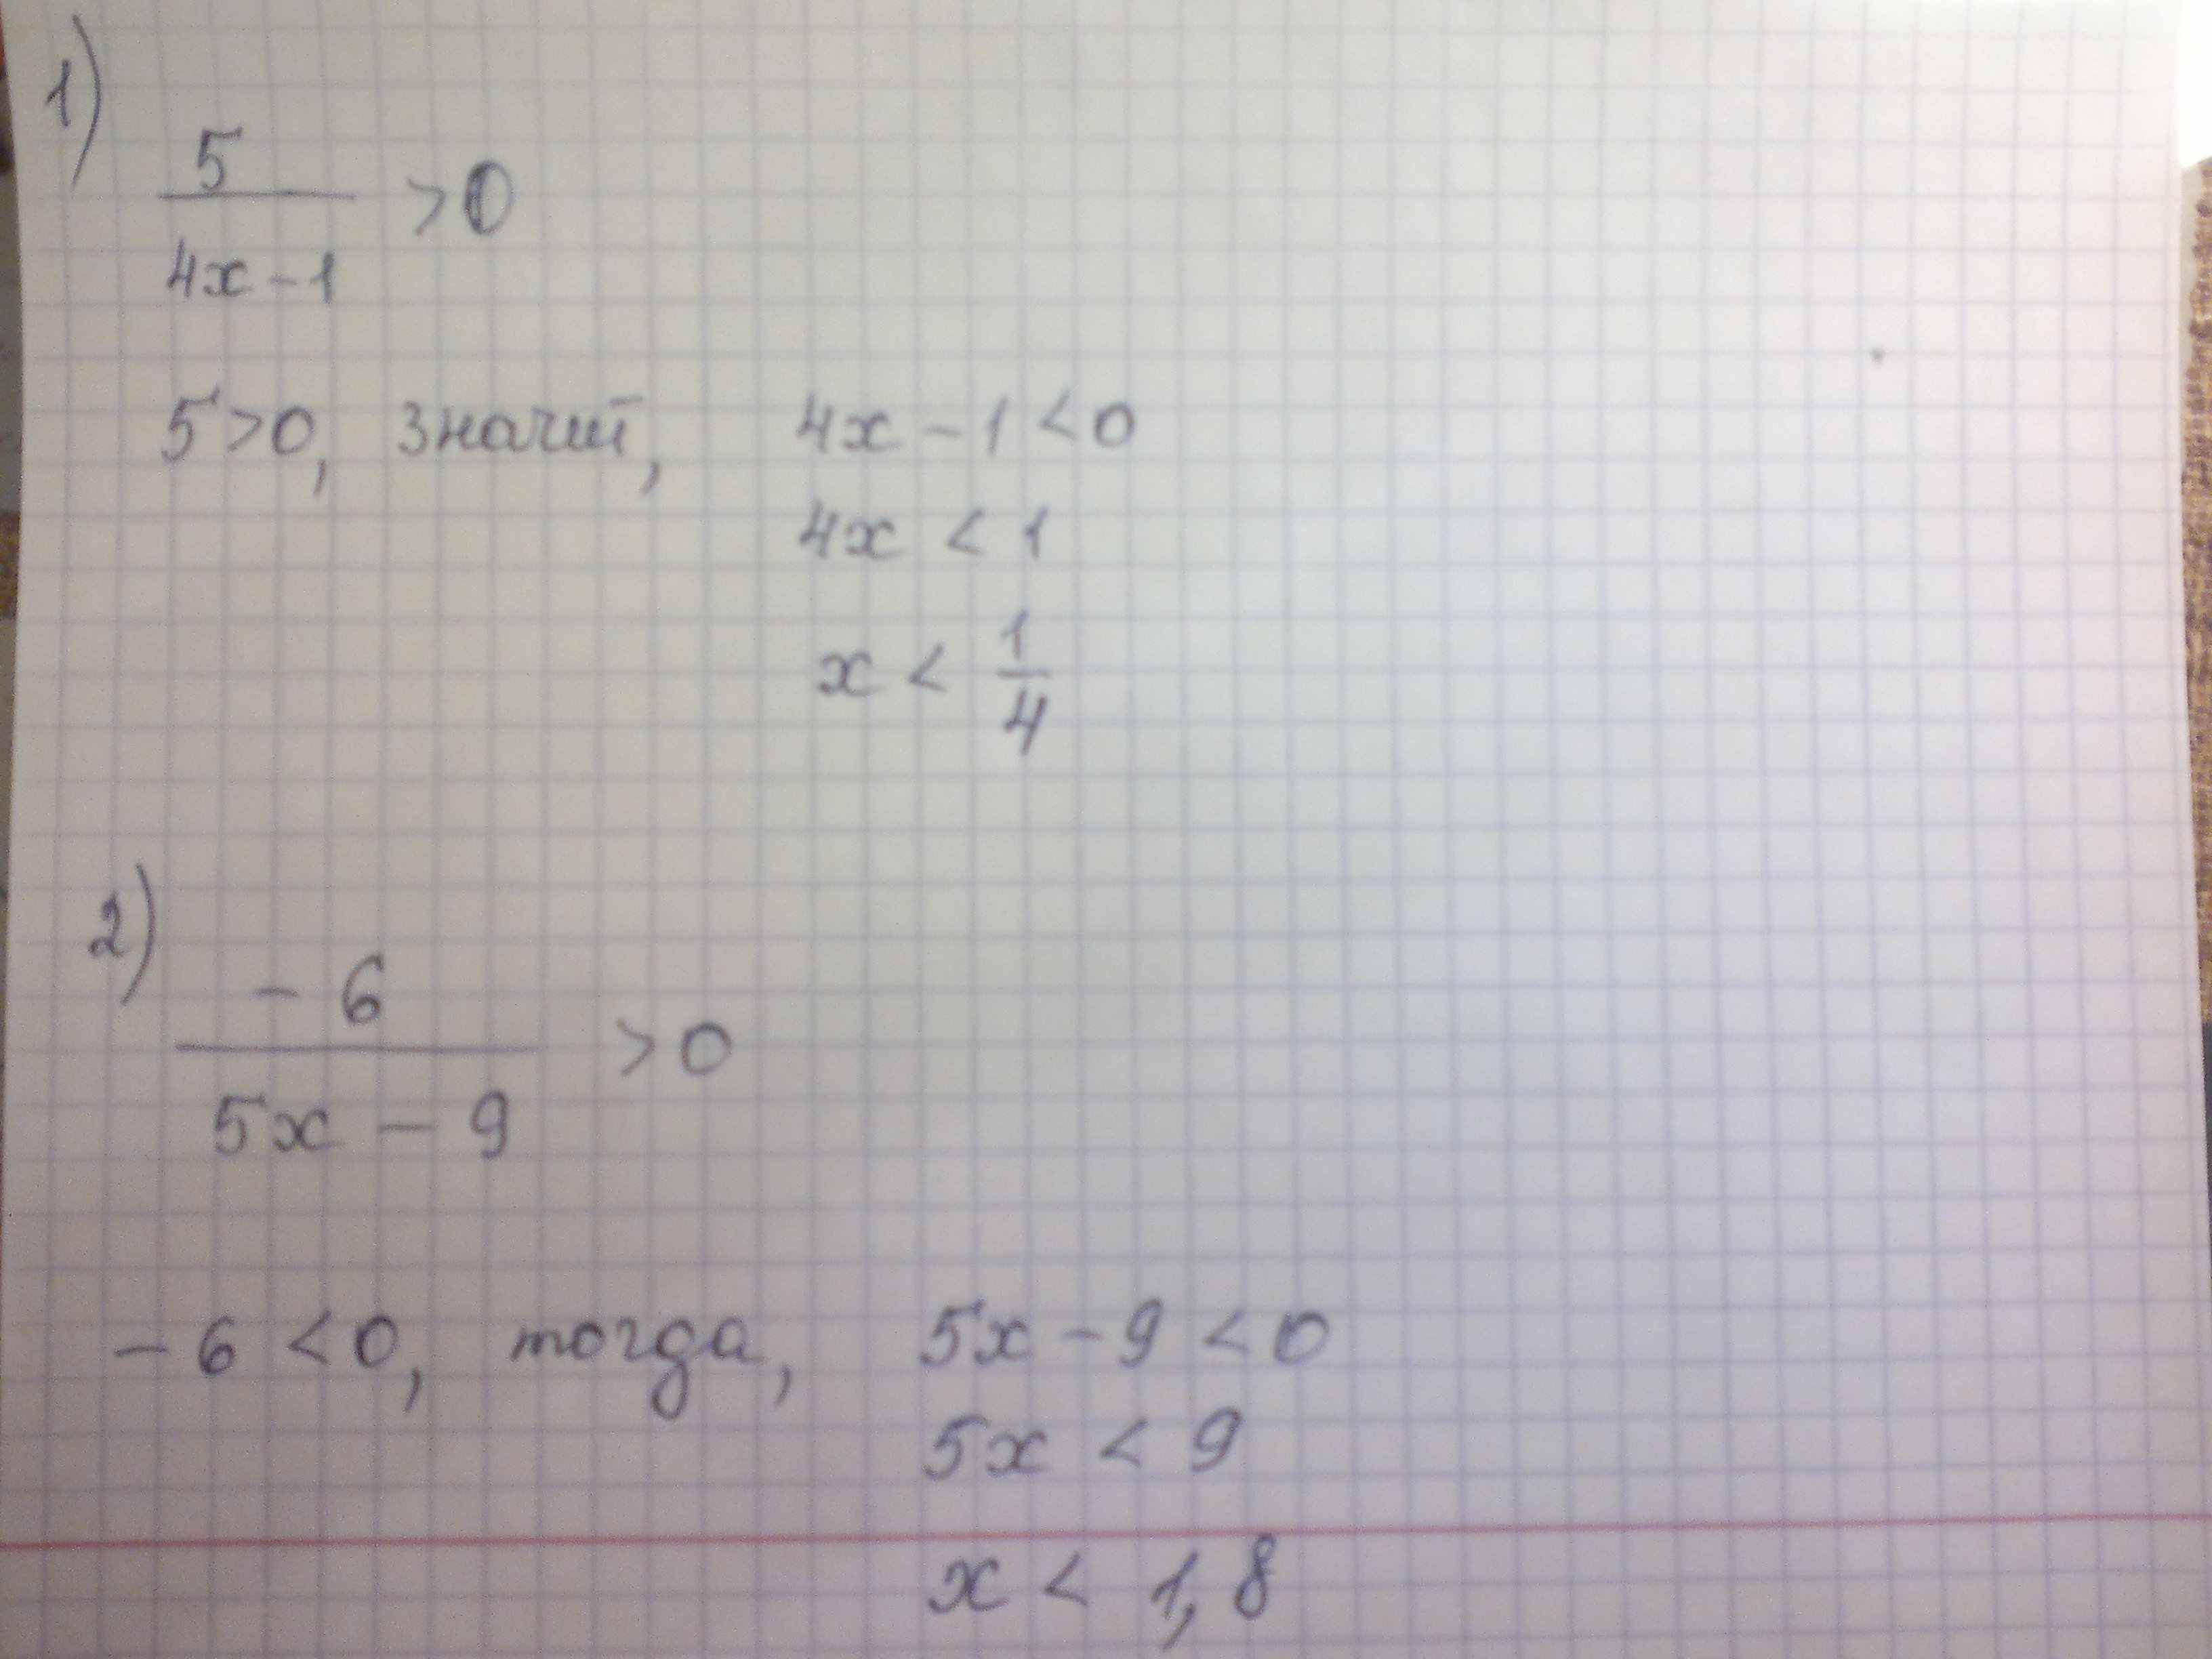 1)
5
4x-1 >0
5>0, значит, 4x-1<0
4x < 1
x < 1/4
2)
-6
5x-9 >0
-6<0, тогда, 5x-9<0
5x < 9
x < 1,8